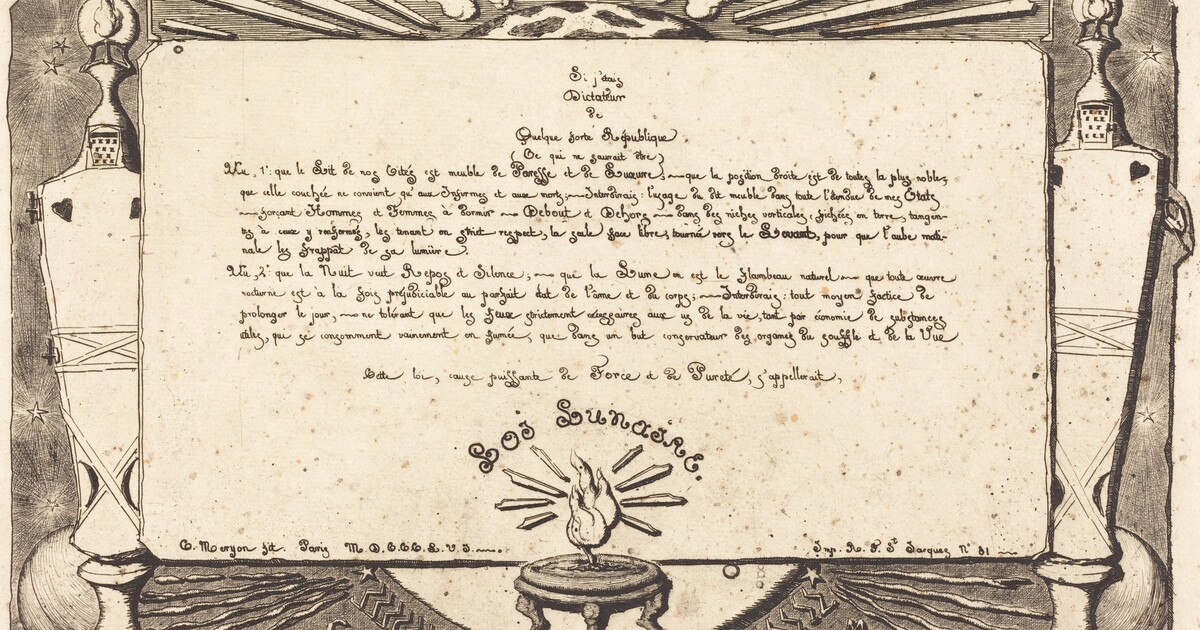 Si j'étais
Dictateur
de
Quelque forte République
(Ce qui ne saurait être)
Vu, 1º: que le Lit de nos Cités est meuble de Paresse et de Luxure; que la position droite est de toutes la plus noble,
que elle couchée ne convient qu'aux Infirmes et aux morts; Interdirais: l'usage du dit meuble dans toute l'étendue de mes États
forçant Hommes et Femmes à dormir Debout et Dehors dans des niches verticales, fichées en terre, tangen-
tes à ceux y renfermés, les tenant en strict respect, la seule face libre, tournée vers le Levant, pour que l'aube mati-
nale les frappât de sa lumière.
Vu, 2º: que la Nuit veut Repos et Silence; que la Lune en est le flambeau naturel que toute œuvre
nocturne est à la fois préjudiciable au parfait état de l'âme et du corps; Interdirais: tout moyen factice de
prolonger le jour, ne tolérant que les feux strictement nécessaires aux us de la vie, tant par économie de substances
utiles, qui se consomment vainement en fumée, que dans un but conservateur des organes du souffle et de la Vue
Cette loi, cause puissante de Force et de Pureté, s'appellerait,
Loi Lunaire.
C. Meryon fit. Paris M.D.C.C.C.L.V.I.
Imp. R. F. St Jacques Nº 81